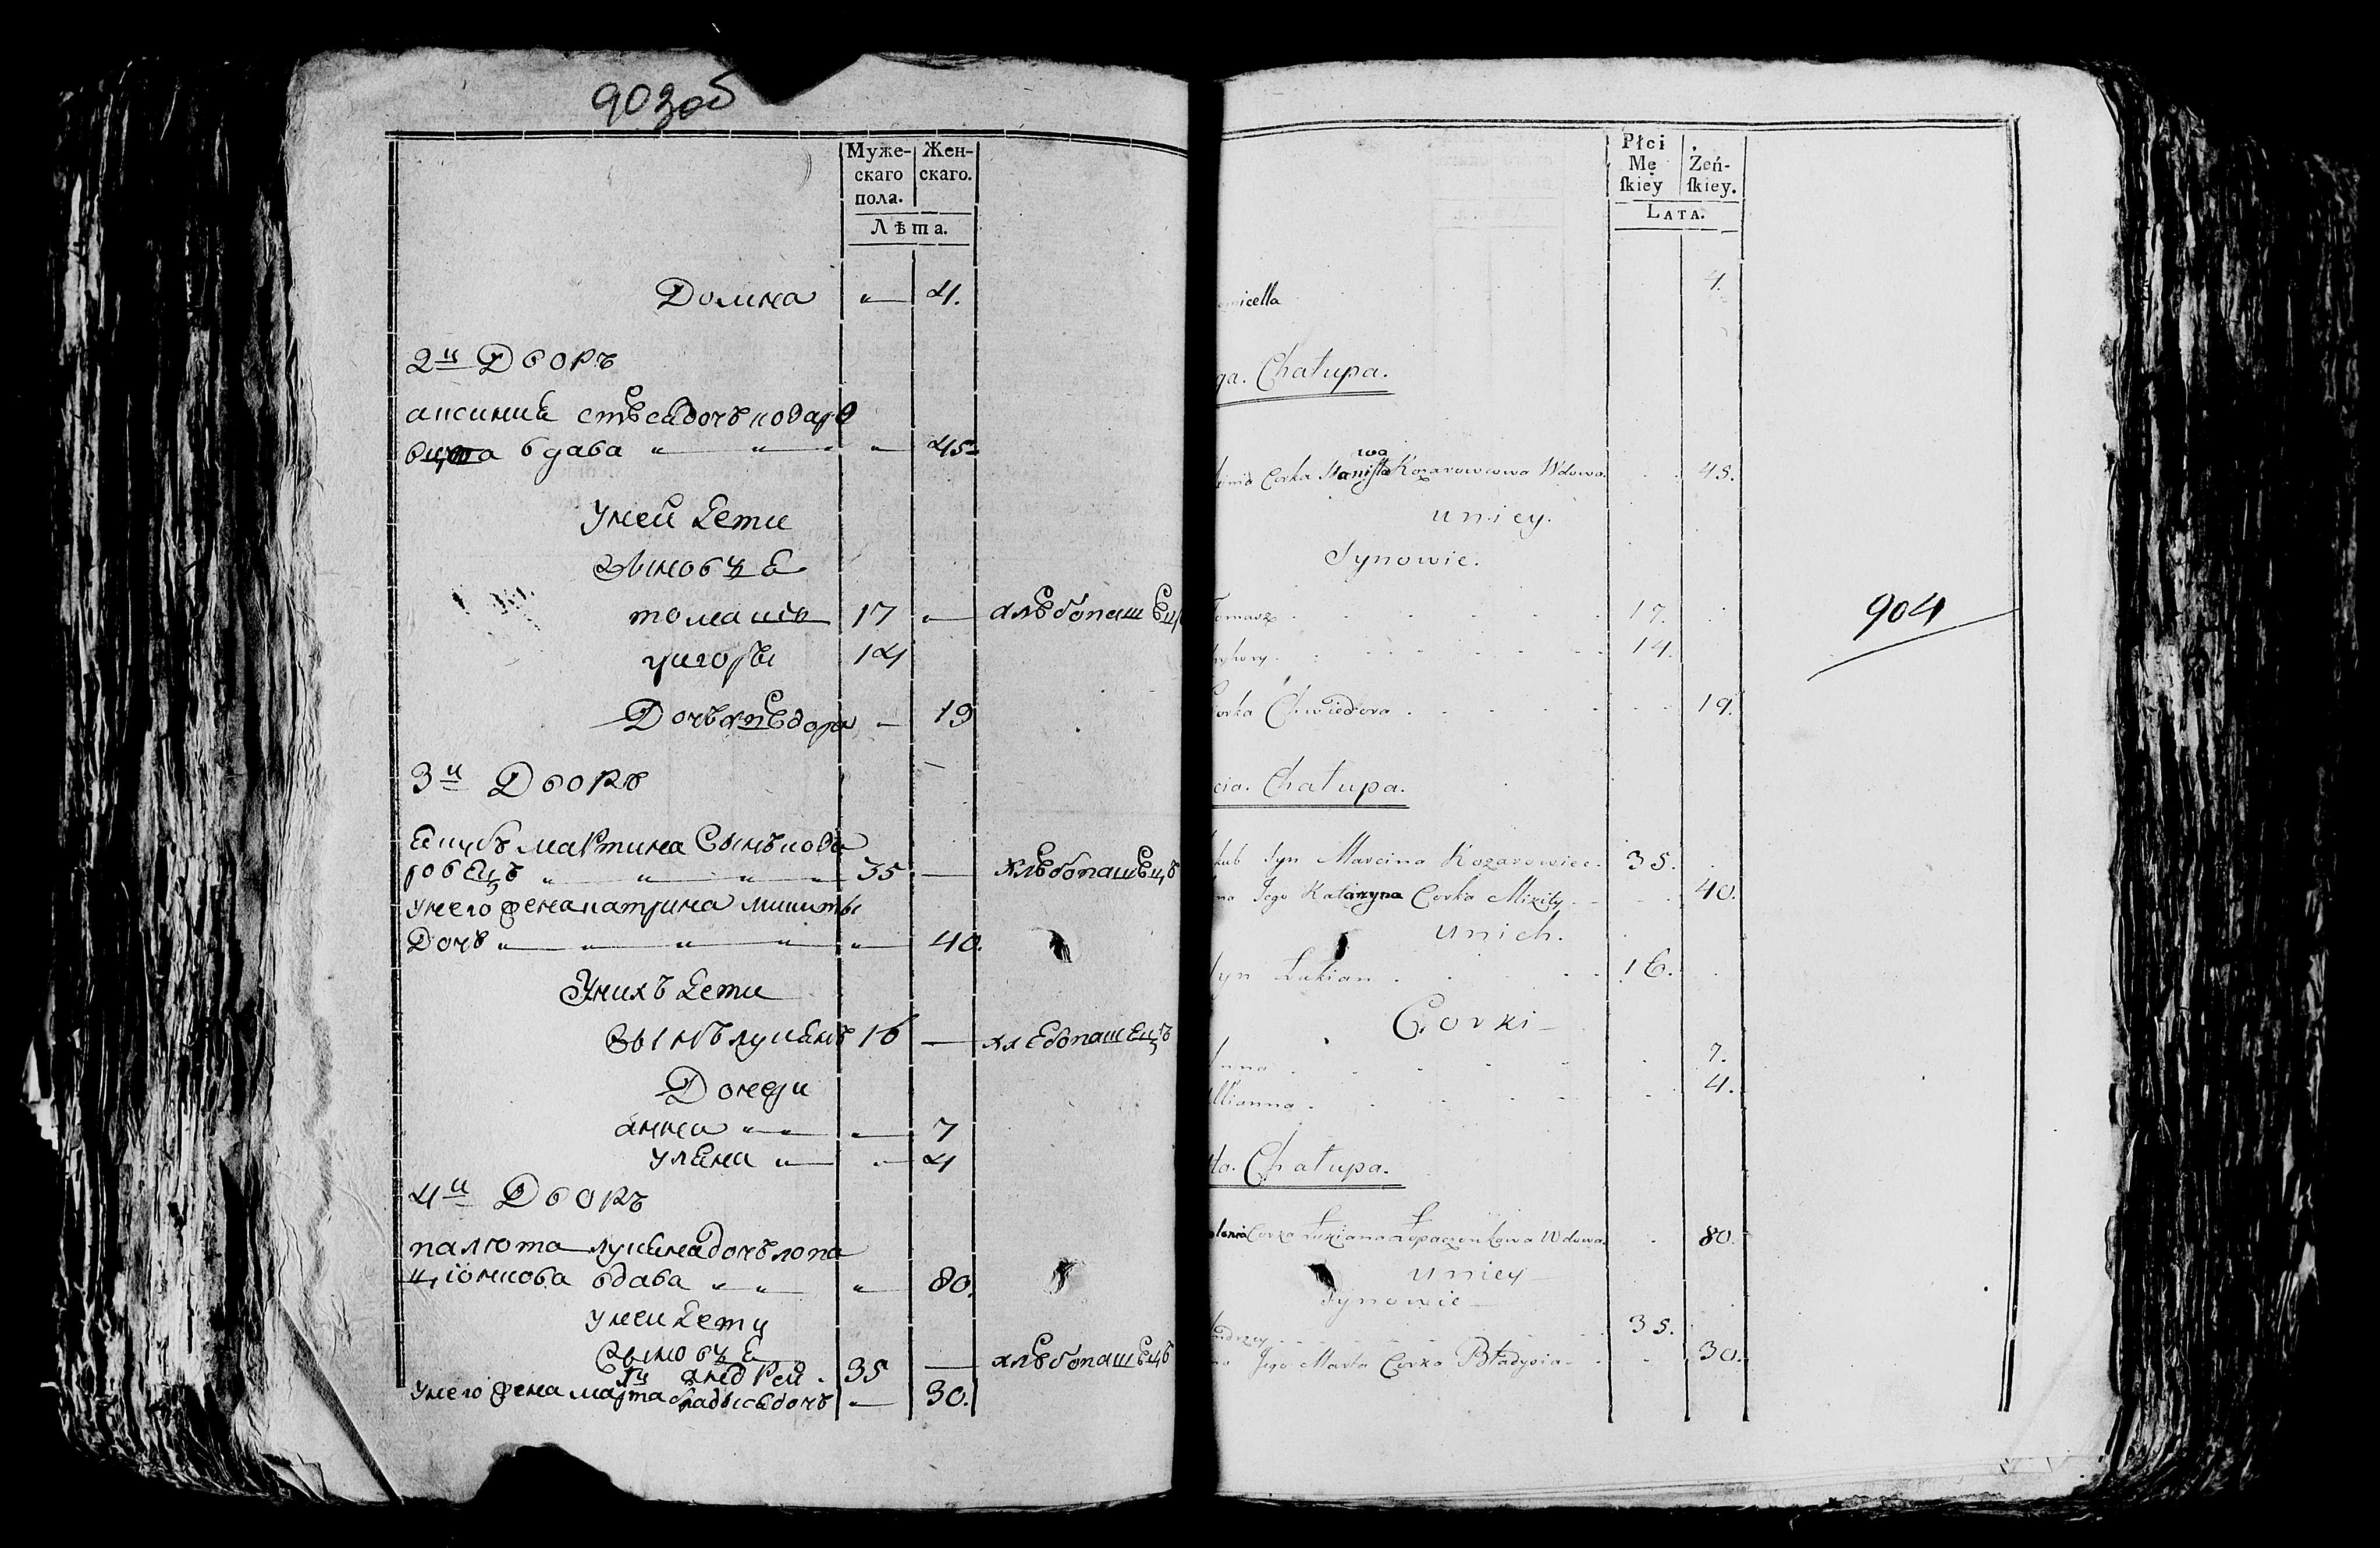 903об
Муже-
скаго
пола.
Жен-
скаго.
Лѣта.
Домина " — 4.
2й Дворъ
вдава " — " — " — 45
Уней дети
Сыновъя
томашъ 17 " — хлѣбопашец
григоръ 14
Дочъ хведора — 19
3й Дворъ
Якубъ мартина Сынъ
" — " — " — 35 — хлѣбопашецъ
унего жена катрина микиты
Дочъ " — " — " — " — " — 40.
Унихъ дети
Сынъ лукянъ 16 — хлебопашецъ
Дочери
анна " — " — " — 7
уляна " — " — 4
4й Дворъ
вдава " — " — " — 80.
уней дети
Сыновъя
андрей 35 — хлѣбопашецъ
Унего жена марта дочъ " — 30.
Płci
Mę
ſkiey
Żeń-
ſkiey.
LATA.
micella 4.
ga. Chałupa.
Corka Staniſława Kozarowcowa Wdowa. 45.
uniey.
Synowie.
Tomasz 17.
hory. 14.
Corka Chwiedora 19.
cia. Chałupa.
kub Syn Marcina Kozarowiec. 35.
na Jego Katarzyna Corka Mikity 40.
unich.
Syn Łukian 16.
Corki
Anna 7.
Ullianna 4.
ta. Chałupa.
Corka Łukiana Łopaczonkowa Wdowa. 80.
uniey
Synowie
Andrzey 35.
na Jego Marta Corka Bładysia 30.
904